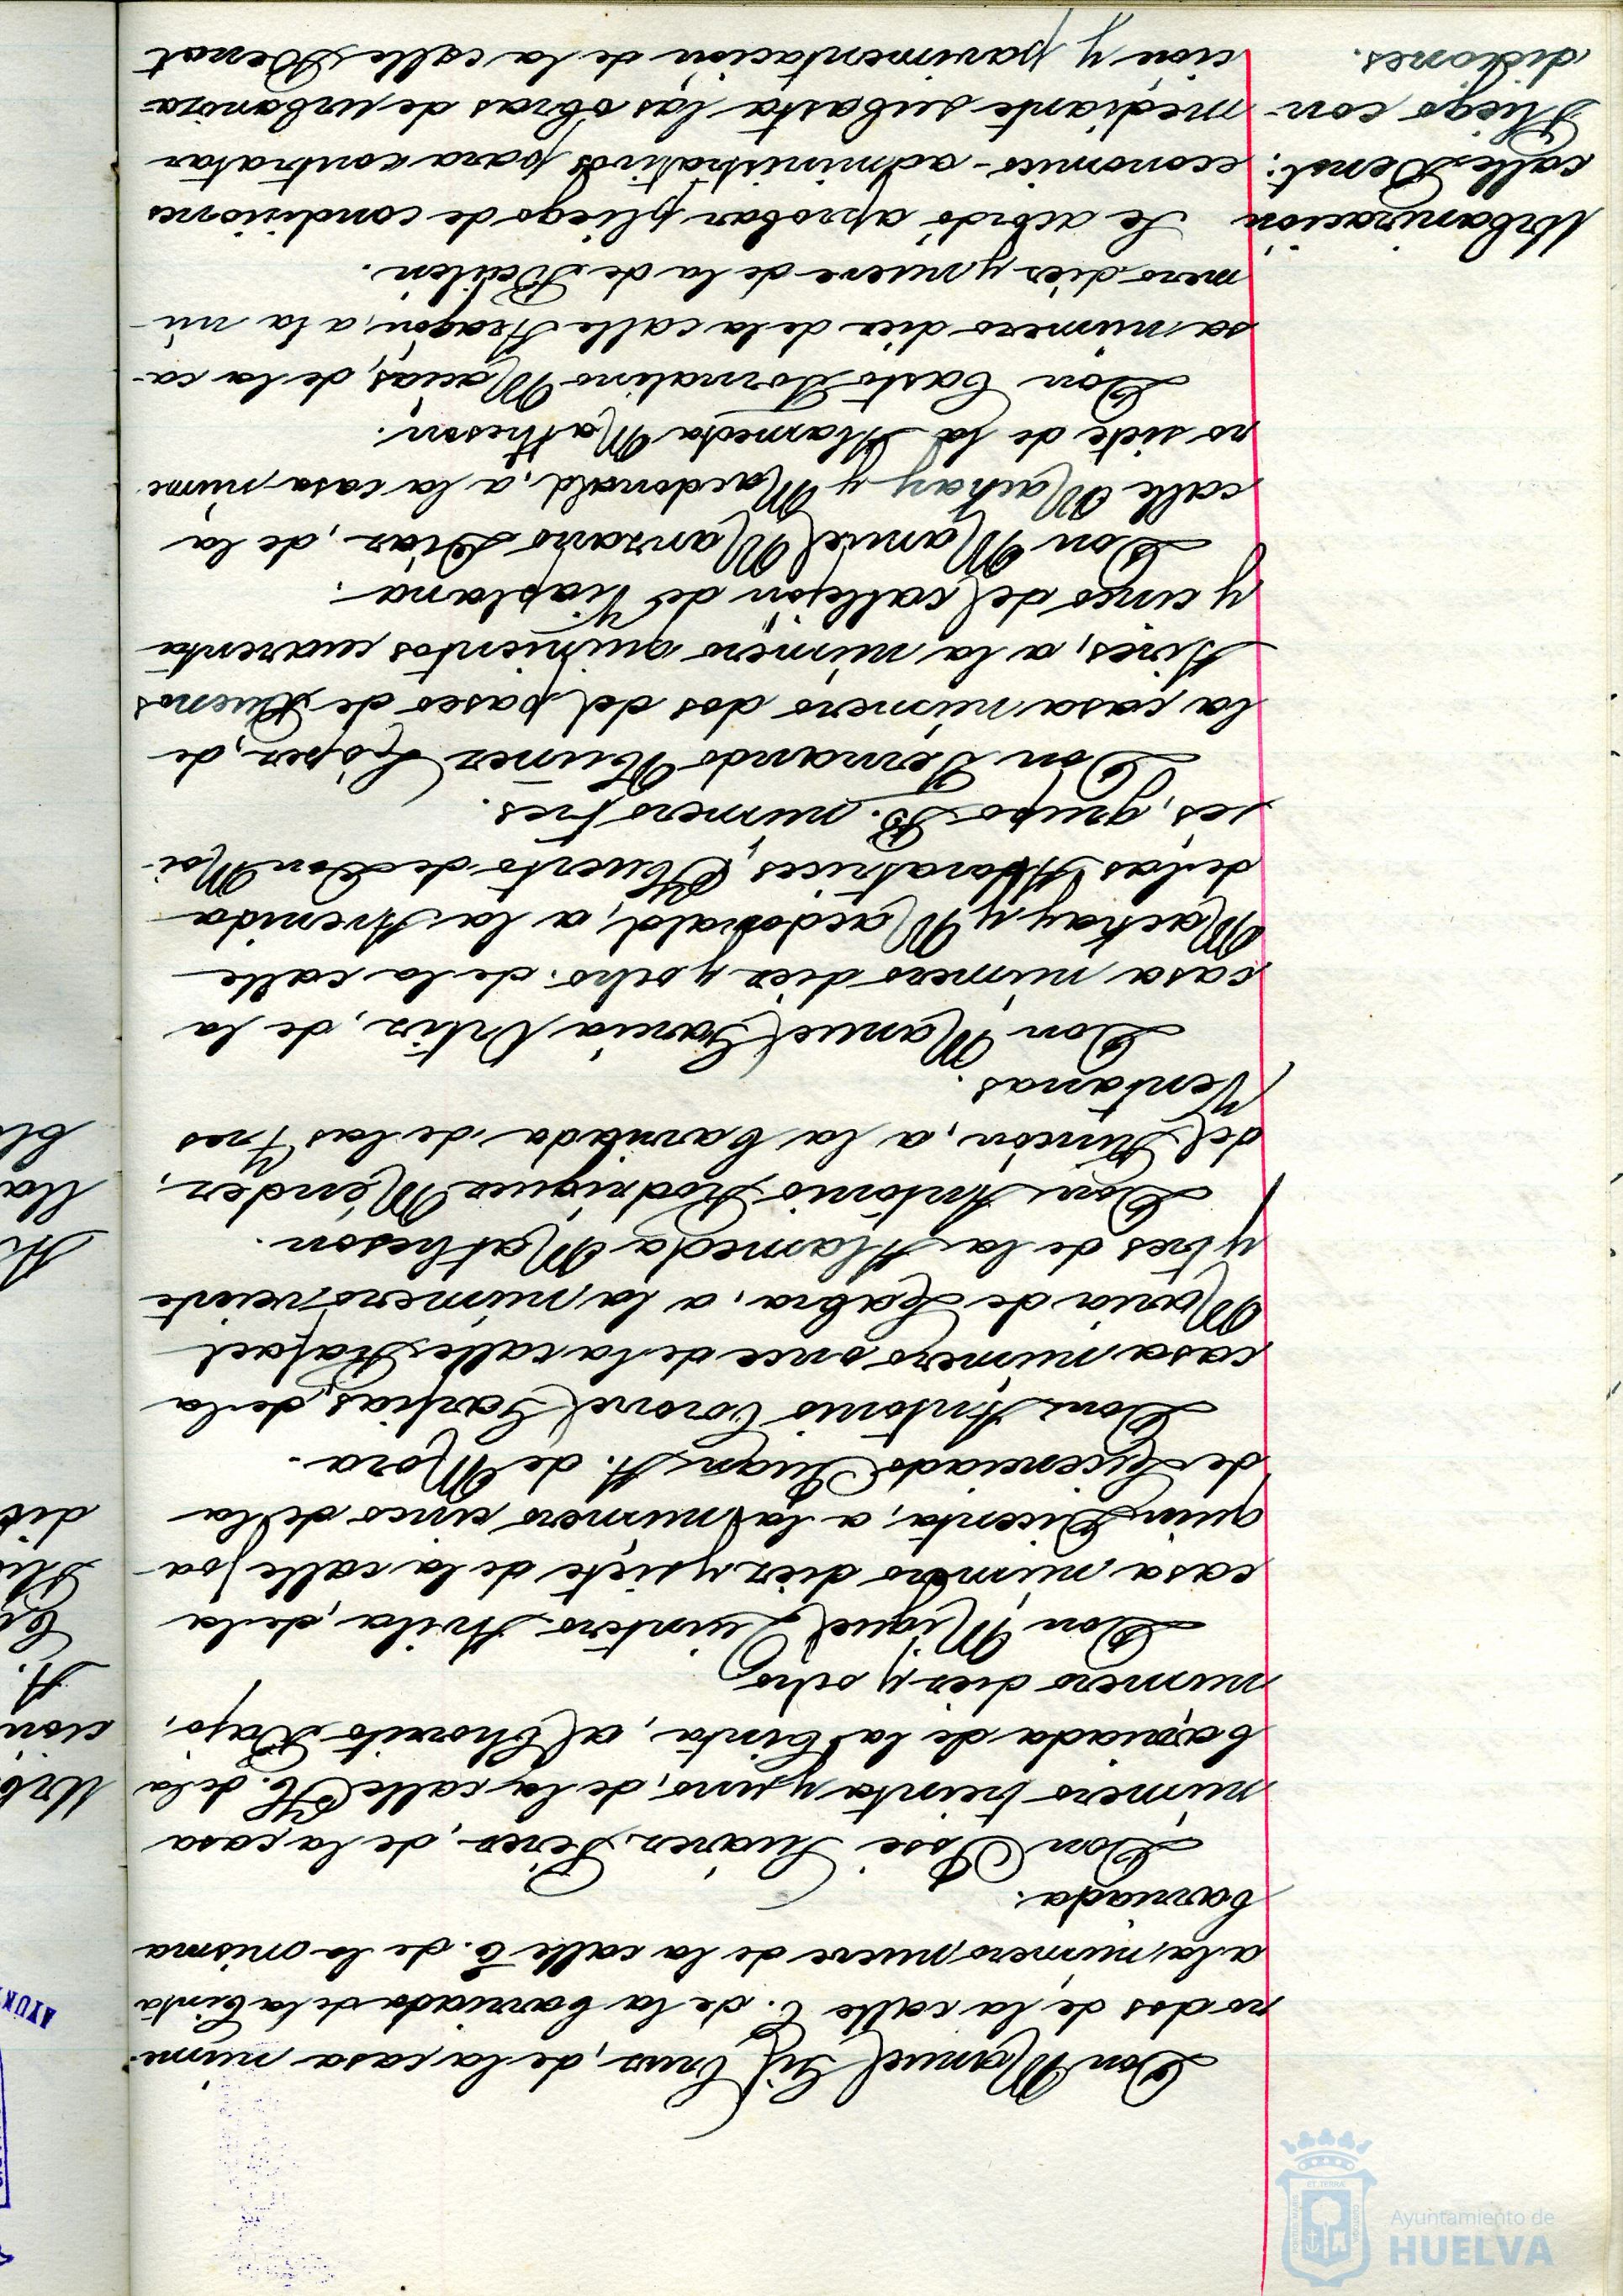 Don Manuel Gil Cruz, de la casa núme-
ro dos de la calle C. de la barriada de la Cinta
a la número nueve de la calle E. de la misma
barriada.
Don José Suárez Pérez, de la casa
número treinta y uno, de la calle H. de la
barriada de la Cinta, al Chorrito Bajo,
número diez y ocho
Don Miguel Quintero Avila, de la
casa número diez y siete de la calle Joa-
quín Dicenta, a la número cinco de la
de Licenciado Juan A. de Mora.
Don Antonio Coronel Garfias, de la
casa número once de la calle Rafael
María de Labra, a la número veinte
y tres de la Alameda Matheson.
Don Antonio Rodríguez Méndez,
del Rincón, a la barriada de las Tres
Ventanas.
Don Manuel García Ortiz, de la
casa número diez y ocho de la calle
Mackay y Macdonald, a la Avenida
de las Adoratrices, Huerto de Don Moi-
sés, grupo B. número tres.
Don Fernando Núñez López, de
la casa número dos del paseo de Buenos
Aires, a la número quinientos cuarenta
y cinco del callejón de Viaplana.
Don Manuel Manzano Díaz, de la
calle Mackay y Macdonald, a la casa núme-
ro siete de la Alameda Matheson.
Don Casto Tornalino Macías, de la ca-
sa número diez de la calle Aragón, a la nú-
mero diez y nueve de la de Bailén.
Urbanización
calle Benot:
Pliego con-
diciones.
Se acordó aprobar pliego de condiciones
económico-administrativas para contratar
mediante subasta las obras de urbaniza-
ción y pavimentación de la calle Benot
Ayuntamiento de
HUELVA